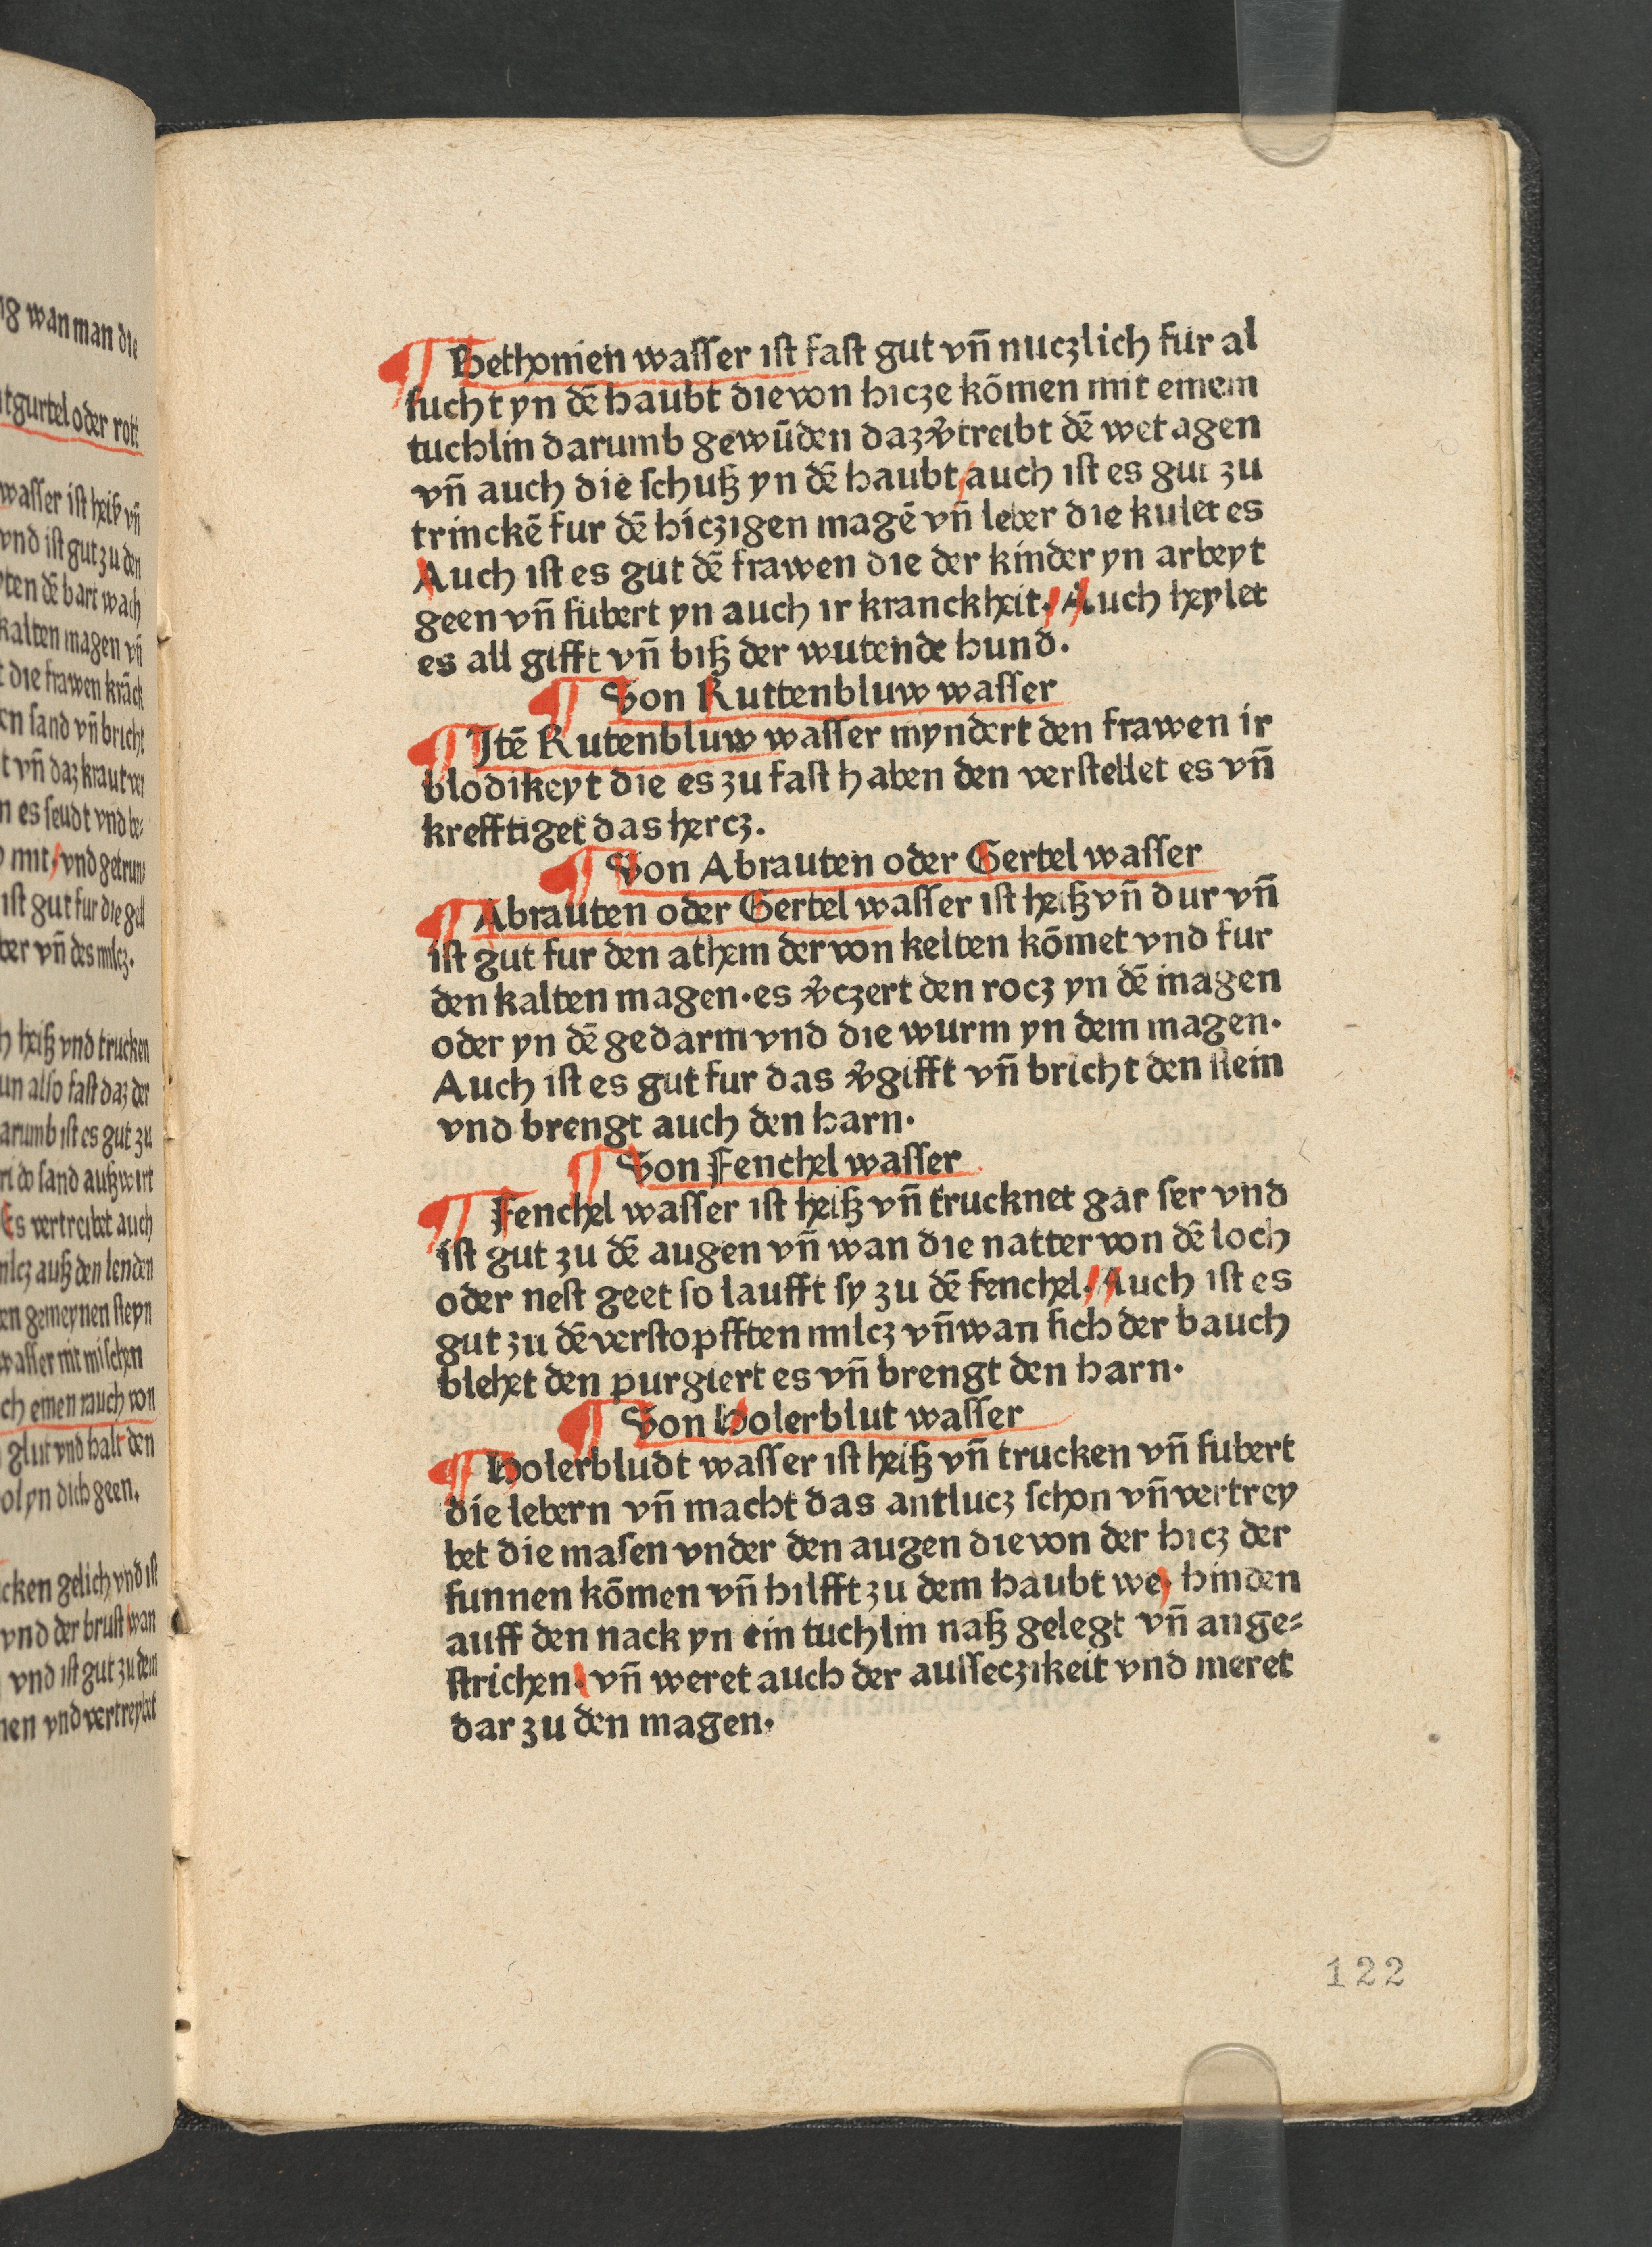 ¶ Bethonien wasser ist fast gut vñ nuczlich fur al
sucht yn dē haubt die von hicze kōmen mit einem
tuchlin darumb gewūden daz v̄treibt dē wetagen
vñ auch die schuß yn dē haubt / auch ist es gut zu
trinckē fur dē hiczigen magē vñ leber die kulet es
Auch ist es gut dē frawen die der kinder yn arbeyt
geen vñ subert yn auch ir kranckheit. Auch heylet
es all gifft vñ biß der wutende hund.
¶ Von Ruttenbluw wasser
¶ Itē Rutenbluw wasser myndert den frawen ir
blodikeyt die es zu fast haben den verstellet es vñ
krefftiget das hercz.
¶ Von Abrauten oder Gertel wasser
¶ Abrauten oder Gertel wasser ist heiß vñ dur vñ
ist gut fur den athem der von kelten kōmet vnd fur
den kalten magen. es v̄czert den rocz yn dē magen
oder yn dē gedarm vnd die wurm yn dem magen.
Auch ist es gut fur das v̄gifft vñ bricht den stein
vnd brengt auch den harn.
¶ Von Fenchel wasser
¶ Fenchel wasser ist heiß vñ trucknet gar ser vnd
ist gut zu dē augen vñ wan die natter von dē loch
oder nest geet so laufft sy zu dē fenchel. Auch ist es
gut zu dē verstopfften milcz vñ wan sich der bauch
blehet den purgiert es vñ brengt den harn.
¶ Von Holerblut wasser
¶ Holerbludt wasser ist heiß vñ trucken vñ subert
die lebern vñ macht das antlucz schon vñ vertrey
bet die masen vnder den augen die von der hicz der
sunnen kōmen vñ hilfft zu dem haubt we. hinden
auff den nack yn ein tuchlin naß gelegt vñ ange=
strichen. vñ weret auch der ausseczikeit vnd meret
dar zu den magen.
122